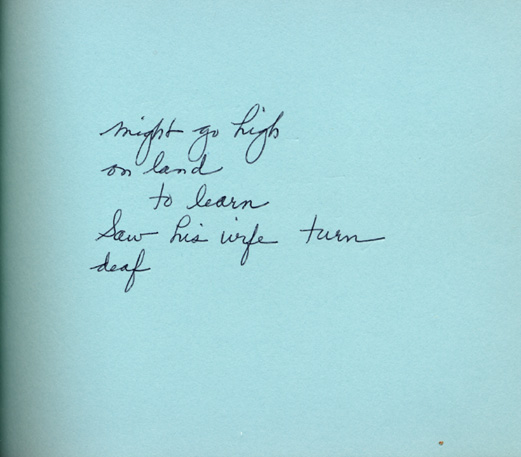 might go high
on land
to learn
Saw his wife turn
deaf